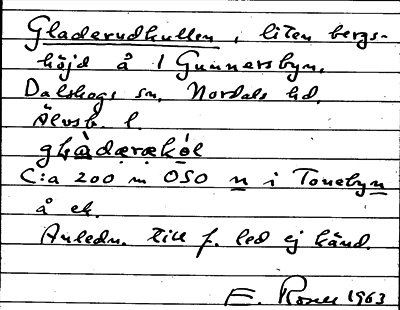 Gladerudkullen, liten bergs-
höjd å 1 Gunnersbyn,
Dalskogs sn, Nordals hd.
Älvsb. l.
C:a 200 m OSO n i Tonebyn
å ek.
Anledn. till f. led ej känd.
E. Rosell 1963